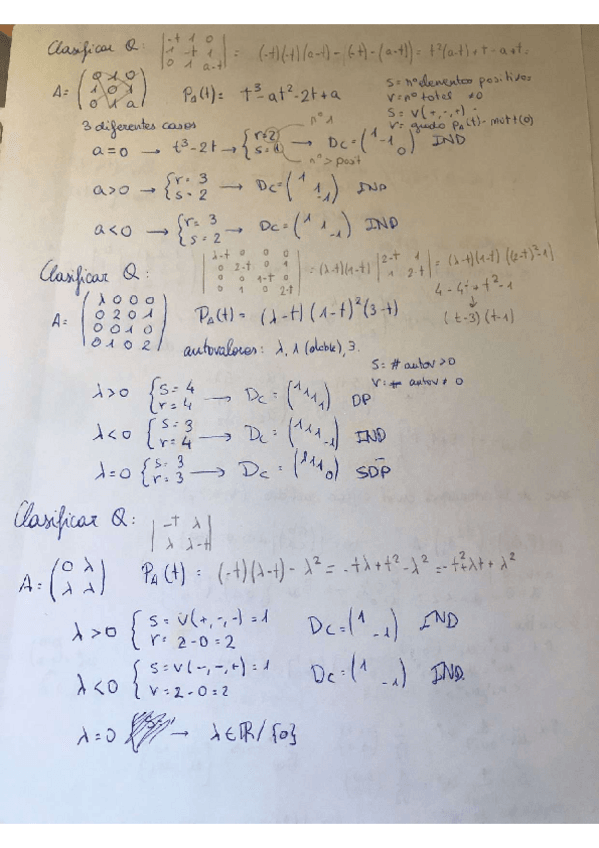 Clasificar Q: | -t 1 0 | 1 -t 1 | 0 1 a-t | = (-t)(-t)(a-t) - (-t)-(a-t)] = t²(a-t)+t-a+t.
A = ( 0 1 0 | 1 0 1 | 0 1 a ) P_A(t) = t³-at²-2t+a
s = nº elementos positivos
r = nº total ≠0
s = v(+,-,+)
r = grado P_A(t) - mult(0)
3 diferentes casos
nº 1
a=0 → t³-2t → { r=2 s=1 → Dc = ( 1 -1 0 ) IND
nº > posit
a>0 → { r=3 s=2 → Dc = ( 1 1 -1 ) IND
a<0 → { r=3 s=2 → Dc = ( 1 1 -1 ) IND
Clasificar Q: | λ-t 0 0 0 | 0 2-t 0 1 | 0 0 1-t 0 | 0 1 0 2-t | = (λ-t)(1-t) | 2-t 1 | 1 2-t | = (λ-t)(1-t) ((2-t)²-1)
4-4t+t²-1
↓
(t-3)(t-1)
A = ( λ 0 0 0 | 0 2 0 1 | 0 0 1 0 | 0 1 0 2 ) P_A(t) = (λ-t)(1-t)²(3-t)
autovalores: λ, 1 (doble), 3.
s: # autov >0
r: # autov ≠ 0
λ>0 { s=4 r=4 → Dc = ( 1 1 1 1 ) DP
λ<0 { s=3 r=4 → Dc = ( 1 1 1 -1 ) IND
λ=0 { s=3 r=3 → Dc = ( 1 1 1 0 ) SDP
Clasificar Q: | -t λ | λ λ-t |
A = ( 0 λ | λ λ ) P_A(t) = (-t)(λ-t)-λ² = -tλ+t²-λ² = -t²+λt+λ²
λ>0 { s = v(+,-,-) = 1 r = 2-0 = 2 Dc = ( 1 -1 ) IND
λ<0 { s = v(-,-,+) = 1 r = 2-0 = 2 Dc = ( 1 -1 ) IND.
λ=0 { → λ∈ℝ/{0}